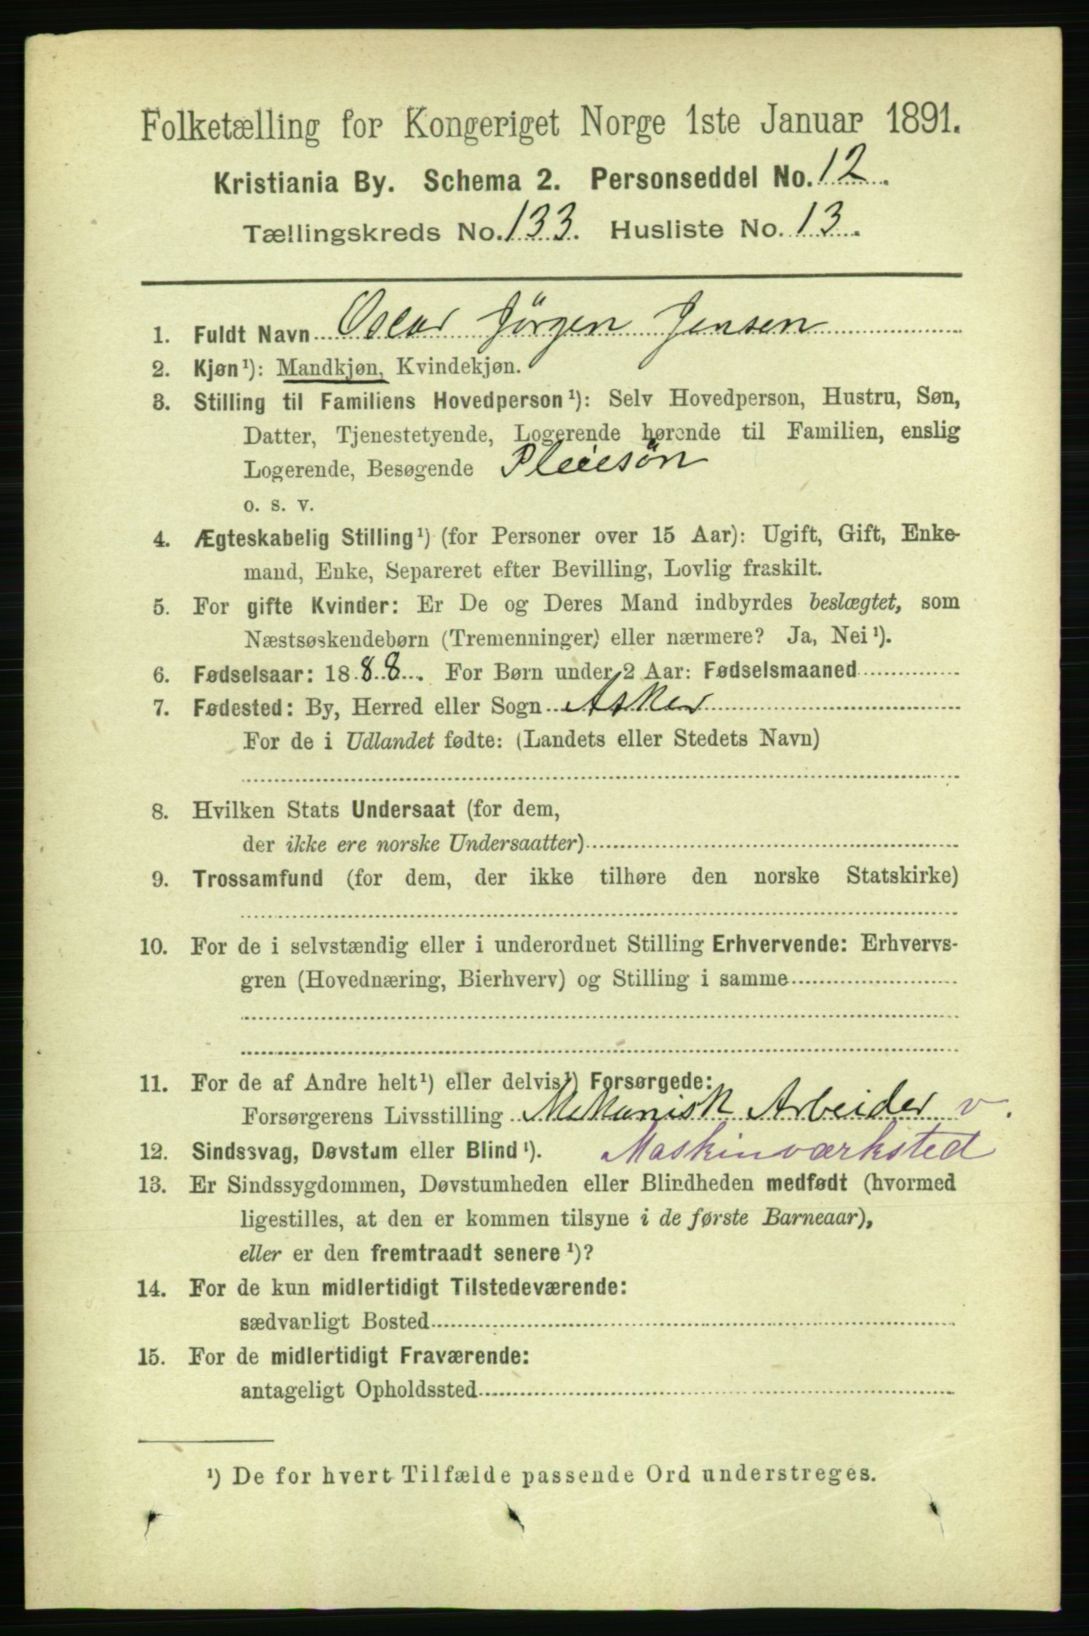 Folketælling for Kongeriget Norge 1ste Januar 1891.
Kristiania By. Schema 2. Personseddel No. 12.
Tællingskreds No. 133. Husliste No. 13.
1. Fuldt Navn Oscar Jörgen Jensen
2. Kjøn¹): Mandkjøn, Kvindekjøn.
3. Stilling til Familiens Hovedperson¹): Selv Hovedperson, Hustru, Søn,
Datter, Tjenestetyende, Logerende hørende til Familien, enslig
Logerende, Besøgende Pleiesön
o. s. v.
4. Ægteskabelig Stilling¹) (for Personer over 15 Aar): Ugift, Gift, Enke-
mand, Enke, Separeret efter Bevilling, Lovlig fraskilt.
5. For gifte Kvinder: Er De og Deres Mand indbyrdes beslægtet, som
Næstsøskendebørn (Tremenninger) eller nærmere? Ja, Nei¹).
6. Fødselsaar: 1888. For Børn under 2 Aar: Fødselsmaaned
7. Fødested: By, Herred eller Sogn Asker
For de i Udlandet fødte: (Landets eller Stedets Navn)
8. Hvilken Stats Undersaat (for dem,
der ikke ere norske Undersaatter)
9. Trossamfund (for dem, der ikke tilhøre den norske Statskirke)
10. For de i selvstændig eller i underordnet Stilling Erhvervende: Erhvervs-
gren (Hovednæring, Bierhverv) og Stilling i samme
11. For de af Andre helt¹) eller delvis¹) Forsørgede:
Forsørgerens Livsstilling Mekanisk Arbeider v.
12. Sindssvag, Døvstum eller Blind¹). Maskinværksted
13. Er Sindssygdommen, Døvstumheden eller Blindheden medfødt (hvormed
ligestilles, at den er kommen tilsyne i de første Barneaar),
eller er den fremtraadt senere¹)?
14. For de kun midlertidigt Tilstedeværende:
sædvanligt Bosted
15. For de midlertidigt Fraværende:
antageligt Opholdssted
¹) De for hvert Tilfælde passende Ord understreges.